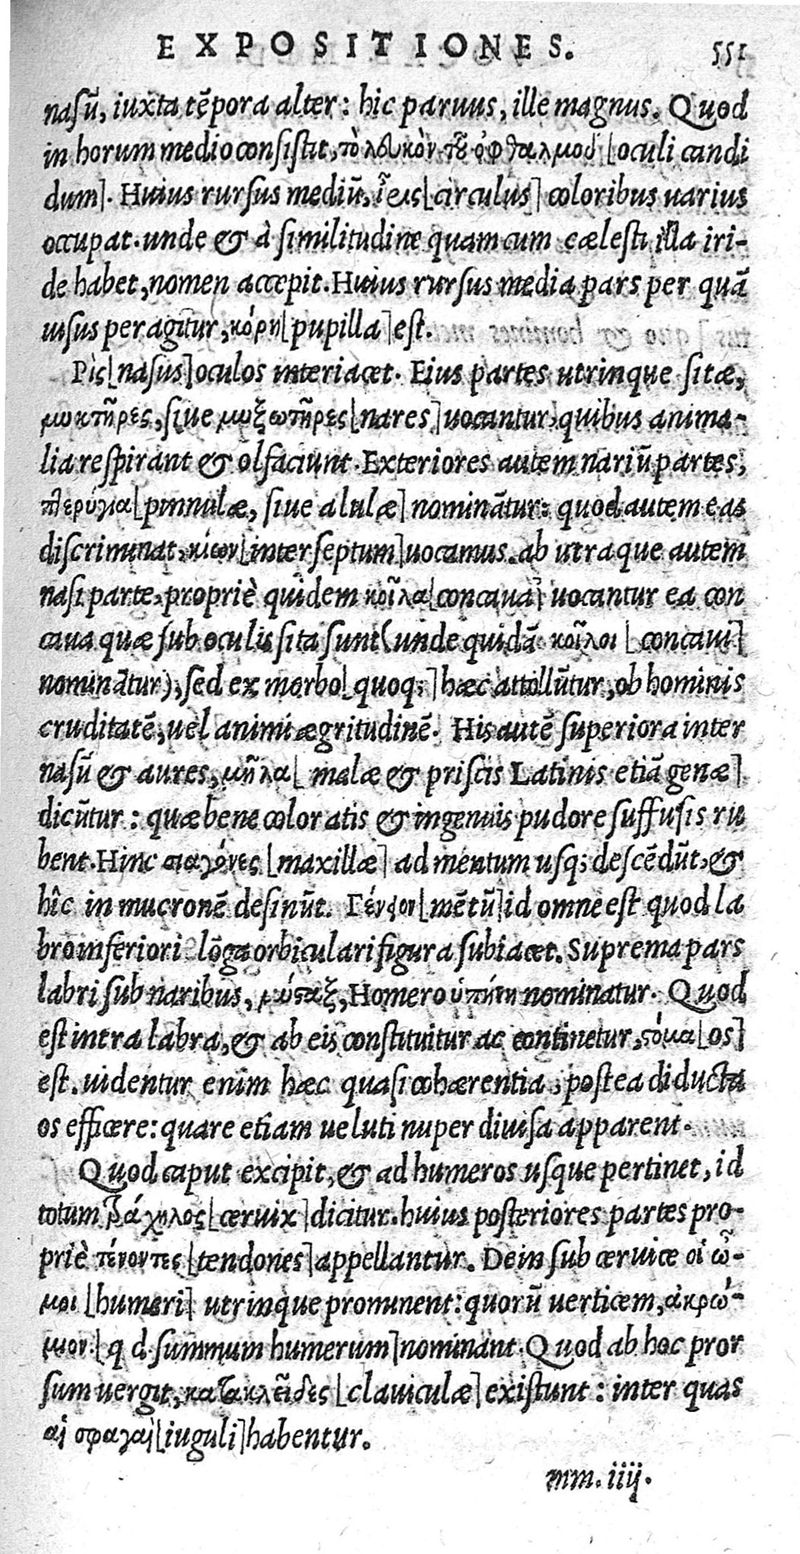 EXPOSITIONES. 551
nasū, iuxta tēpora alter: hic paruus, ille magnus. Quod
in horum medio consistit, τὸ λευκὸν τοῦ ὀφθαλμοῦ [oculi candi
dum]. Huius rursus mediū, ἶρις [circulus] coloribus uarius
occupat. unde & à similitudine quam cum cælesti illa iri-
de habet, nomen accepit. Huius rursus media pars per quā
uisus peragitur, κόρη [pupilla] est.
Ρὶς [nasus] oculos interiacet. Eius partes utrinque sitæ,
μυκτῆρες, siue μυξωτῆρες [nares] uocantur, quibus anima-
lia respirant & olfaciunt. Exteriores autem nariū partes,
πτερύγια [pinnulæ, siue alulæ] nominātur: quod autem eas
discriminat, κίων [interseptum] uocamus. ab utraque autem
nasi parte, propriè quidem κοῖλα [concaua] uocantur ea con
caua quæ sub oculis sita sunt (unde quidā κοῖλοι [concaui]
nominātur), sed ex morbo [quoq;] hæc attollūtur, ob hominis
cruditatē, uel animi ægritudinē. His autē superiora inter
nasū & aures, μῆλα [malæ & priscis Latinis etiā genæ]
dicūtur: quæ bene coloratis & ingenuis pudore suffusis ru
bent. Hinc σιαγόνες [maxillæ] ad mentum usq; descēdūt, &
hîc in mucronē desinūt. Γένειον [mētū] id omne est quod la
bro inferiori lōga orbiculari figura subiacet. Suprema pars
labri sub naribus, μύσταξ, Homero ὑπήνη nominatur. Quod
est intra labra, & ab eis constituitur ac continetur, στόμα [os]
est. uidentur enim hæc quasi cohærentia, postea diducta
os efficere: quare etiam ueluti nuper diuisa apparent.
Quod caput excipit, & ad humeros usque pertinet, id
totum τράχηλος [ceruix] dicitur. huius posteriores partes pro-
priè τένοντες [tendones] appellantur. Dein sub ceruice οἱ ὦ-
μοι [humeri] utrinque prominent: quorū uerticem, ἀκρώ-
μιον [q d. summum humerum] nominant. Quod ab hoc pror
sum uergit, κατακλεῖδες [clauiculæ] existunt: inter quas
αἱ σφαγαὶ [iuguli] habentur.
mm. iiij.